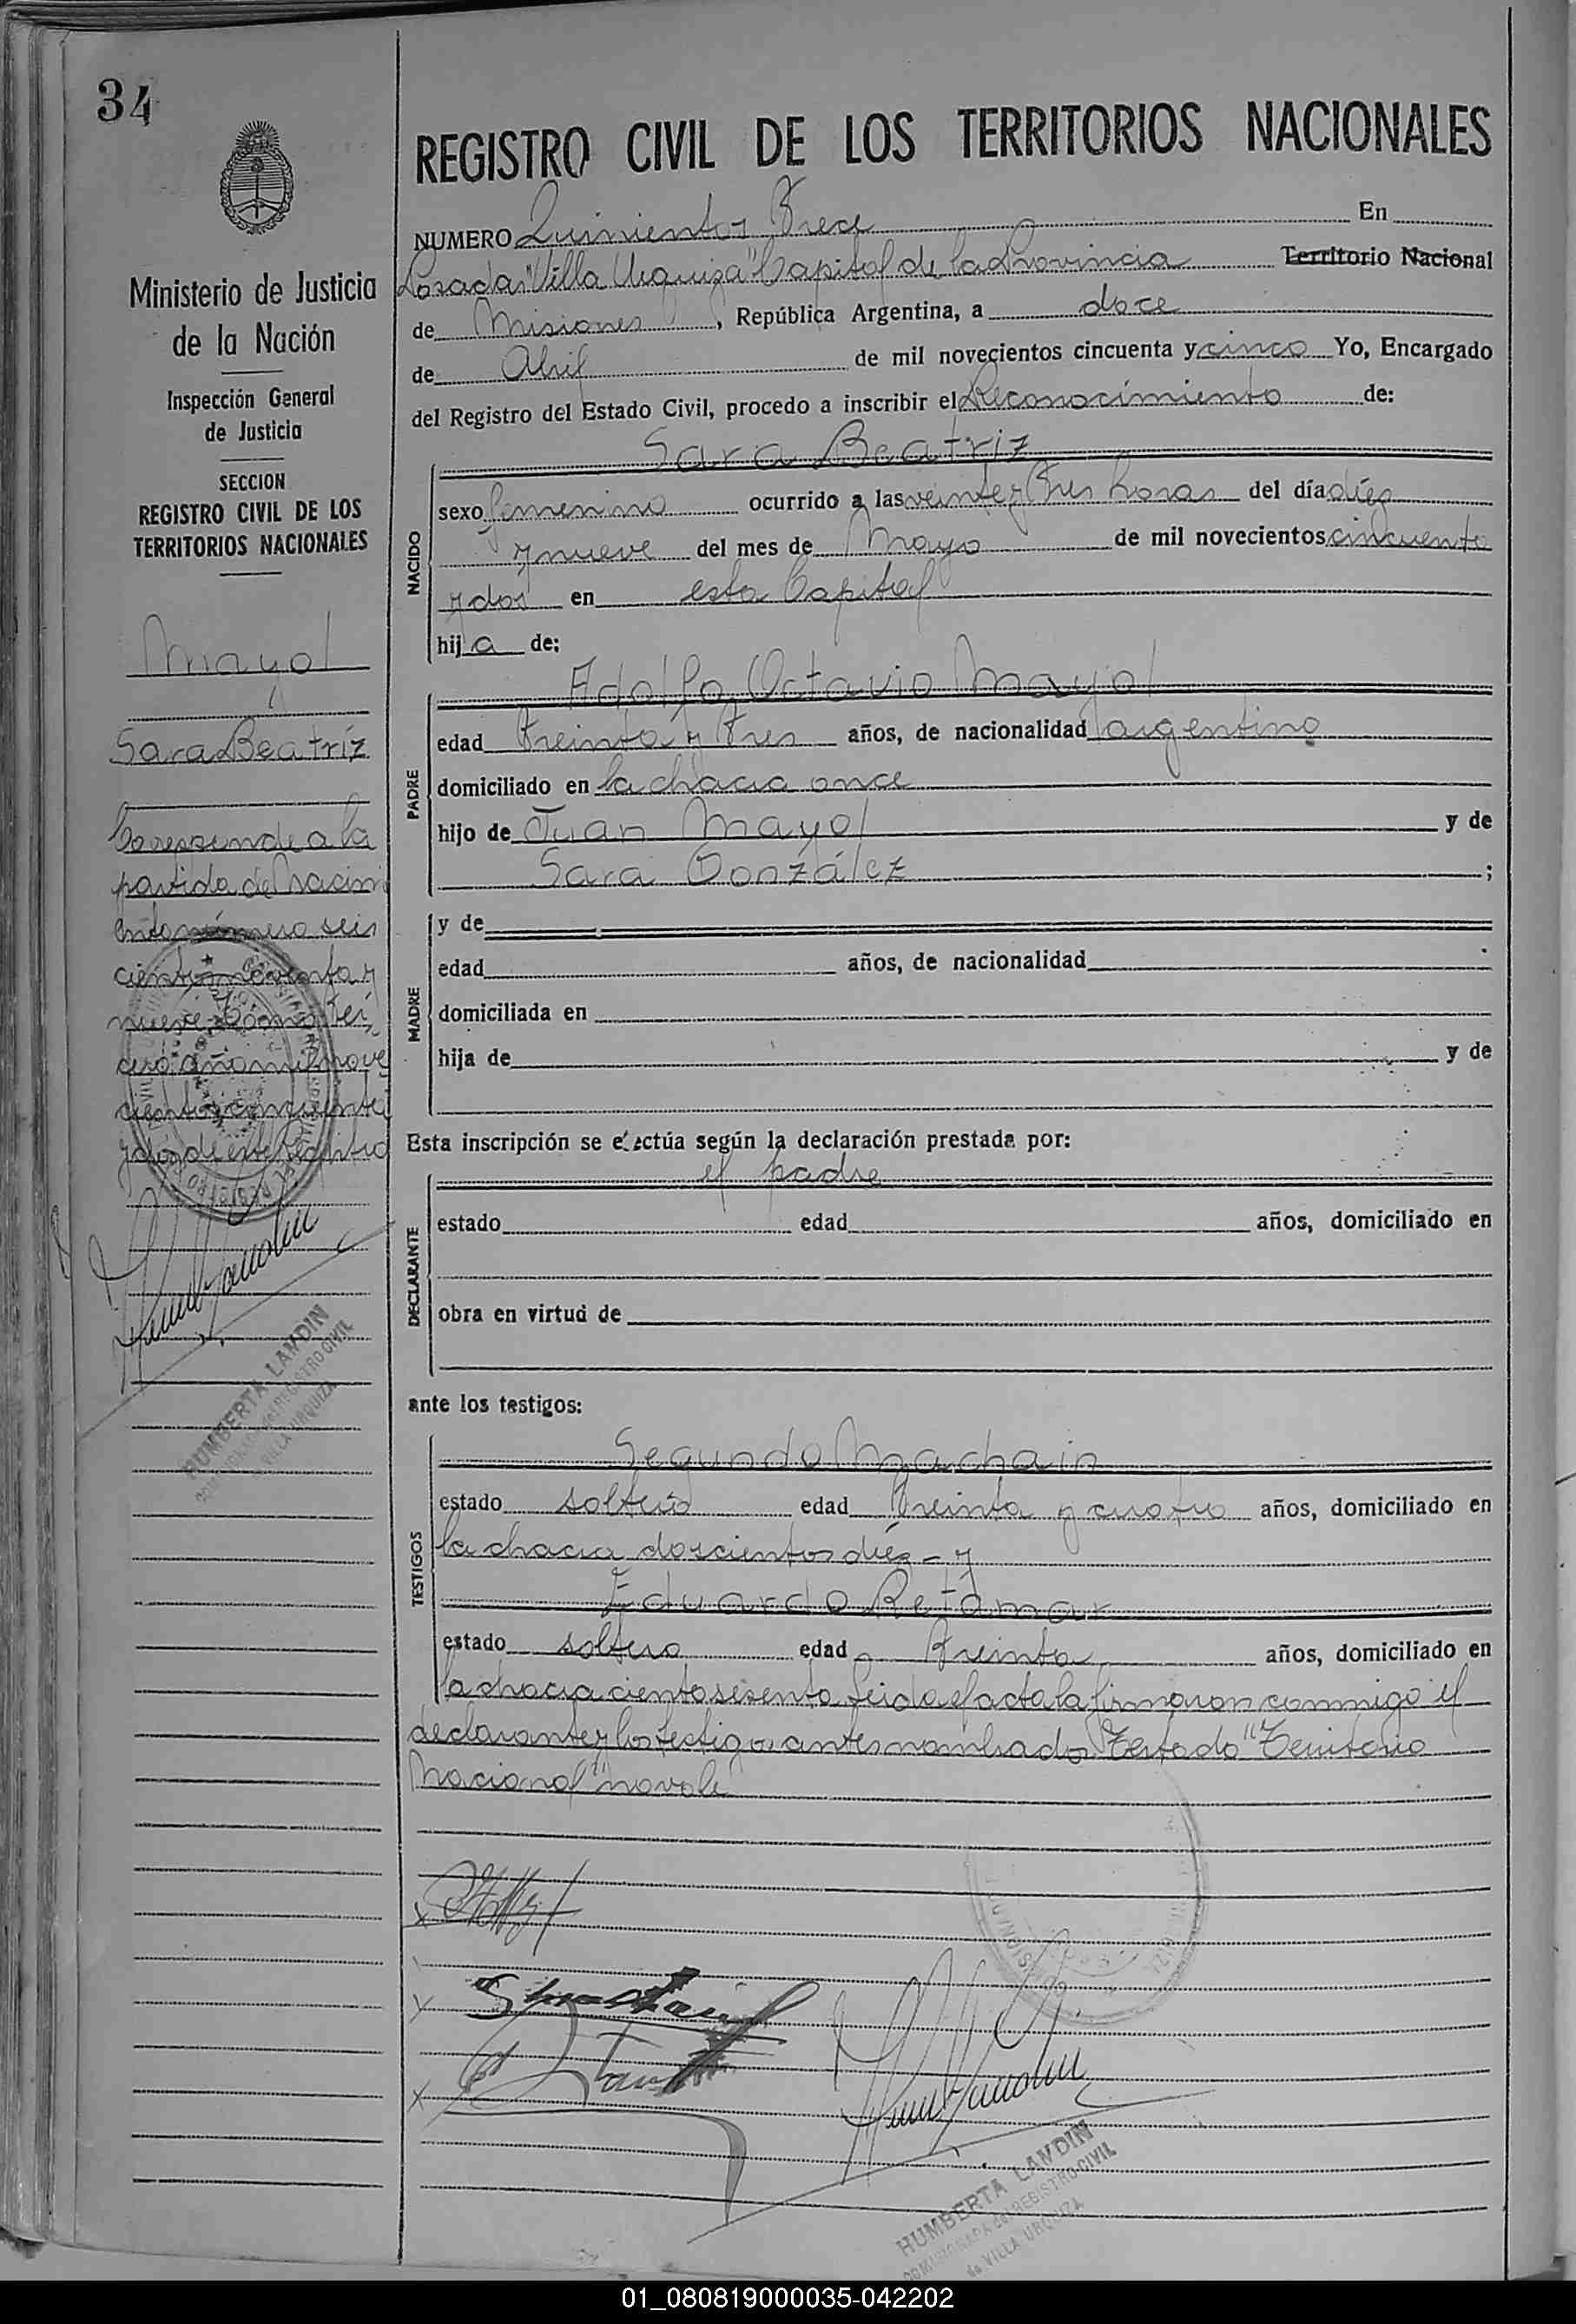 34
Ministerio de Justicia
de la Nación
Inspección General
de Justicia
SECCION
REGISTRO CIVIL DE LOS
TERRITORIOS NACIONALES
Mayol
Sara Beatriz
Corresponde a la
partida de Nacimi
ento número seis
cientos noventa y
nueve Tomo ter
cero año mil nove
cientos cincuenta
y dos de este Registro
HUMBERTA LANDIN
COMISIONADA del REGISTRO CIVIL
de VILLA URQUIZA
REGISTRO CIVIL DE LOS TERRITORIOS NACIONALES
NUMERO Quinientos Trece En
Posadas "Villa Urquiza" Capital de la Provincia Territorio Nacional
de Misiones, República Argentina, a doce
de Abril de mil novecientos cincuenta y cinco Yo, Encargado
del Registro del Estado Civil, procedo a inscribir el Reconocimiento de:
Sara Beatriz
NACIDO
sexo femenino ocurrido a las veinte y tres horas del día diéz
y nueve del mes de Mayo de mil novecientos cincuenta
y dos en esta Capital
hija de:
Adolfo Octavio Mayol
PADRE
edad treinta y tres años, de nacionalidad argentino
domiciliado en la chacra once
hijo de Juan Mayol y de
Sara González ;
MADRE
y de
edad años, de nacionalidad
domiciliada en
hija de y de
Esta inscripción se efectúa según la declaración prestada por:
el padre
DECLARANTE
estado edad años, domiciliado en
obra en virtud de
ante los testigos:
Segundo Machain
TESTIGOS
estado soltero edad treinta y cuatro años, domiciliado en
la chacra doscientos diéz - y
Eduardo Retamar
estado soltero edad treinta años, domiciliado en
la chacra ciento sesenta leida el acta la firmaron conmigo el
declarante y los testigos antes nombrados Testado "Territorio
Nacional" no vale
HUMBERTA LANDIN
COMISIONADA del REGISTRO CIVIL
de VILLA URQUIZA
01_080819000035-042202